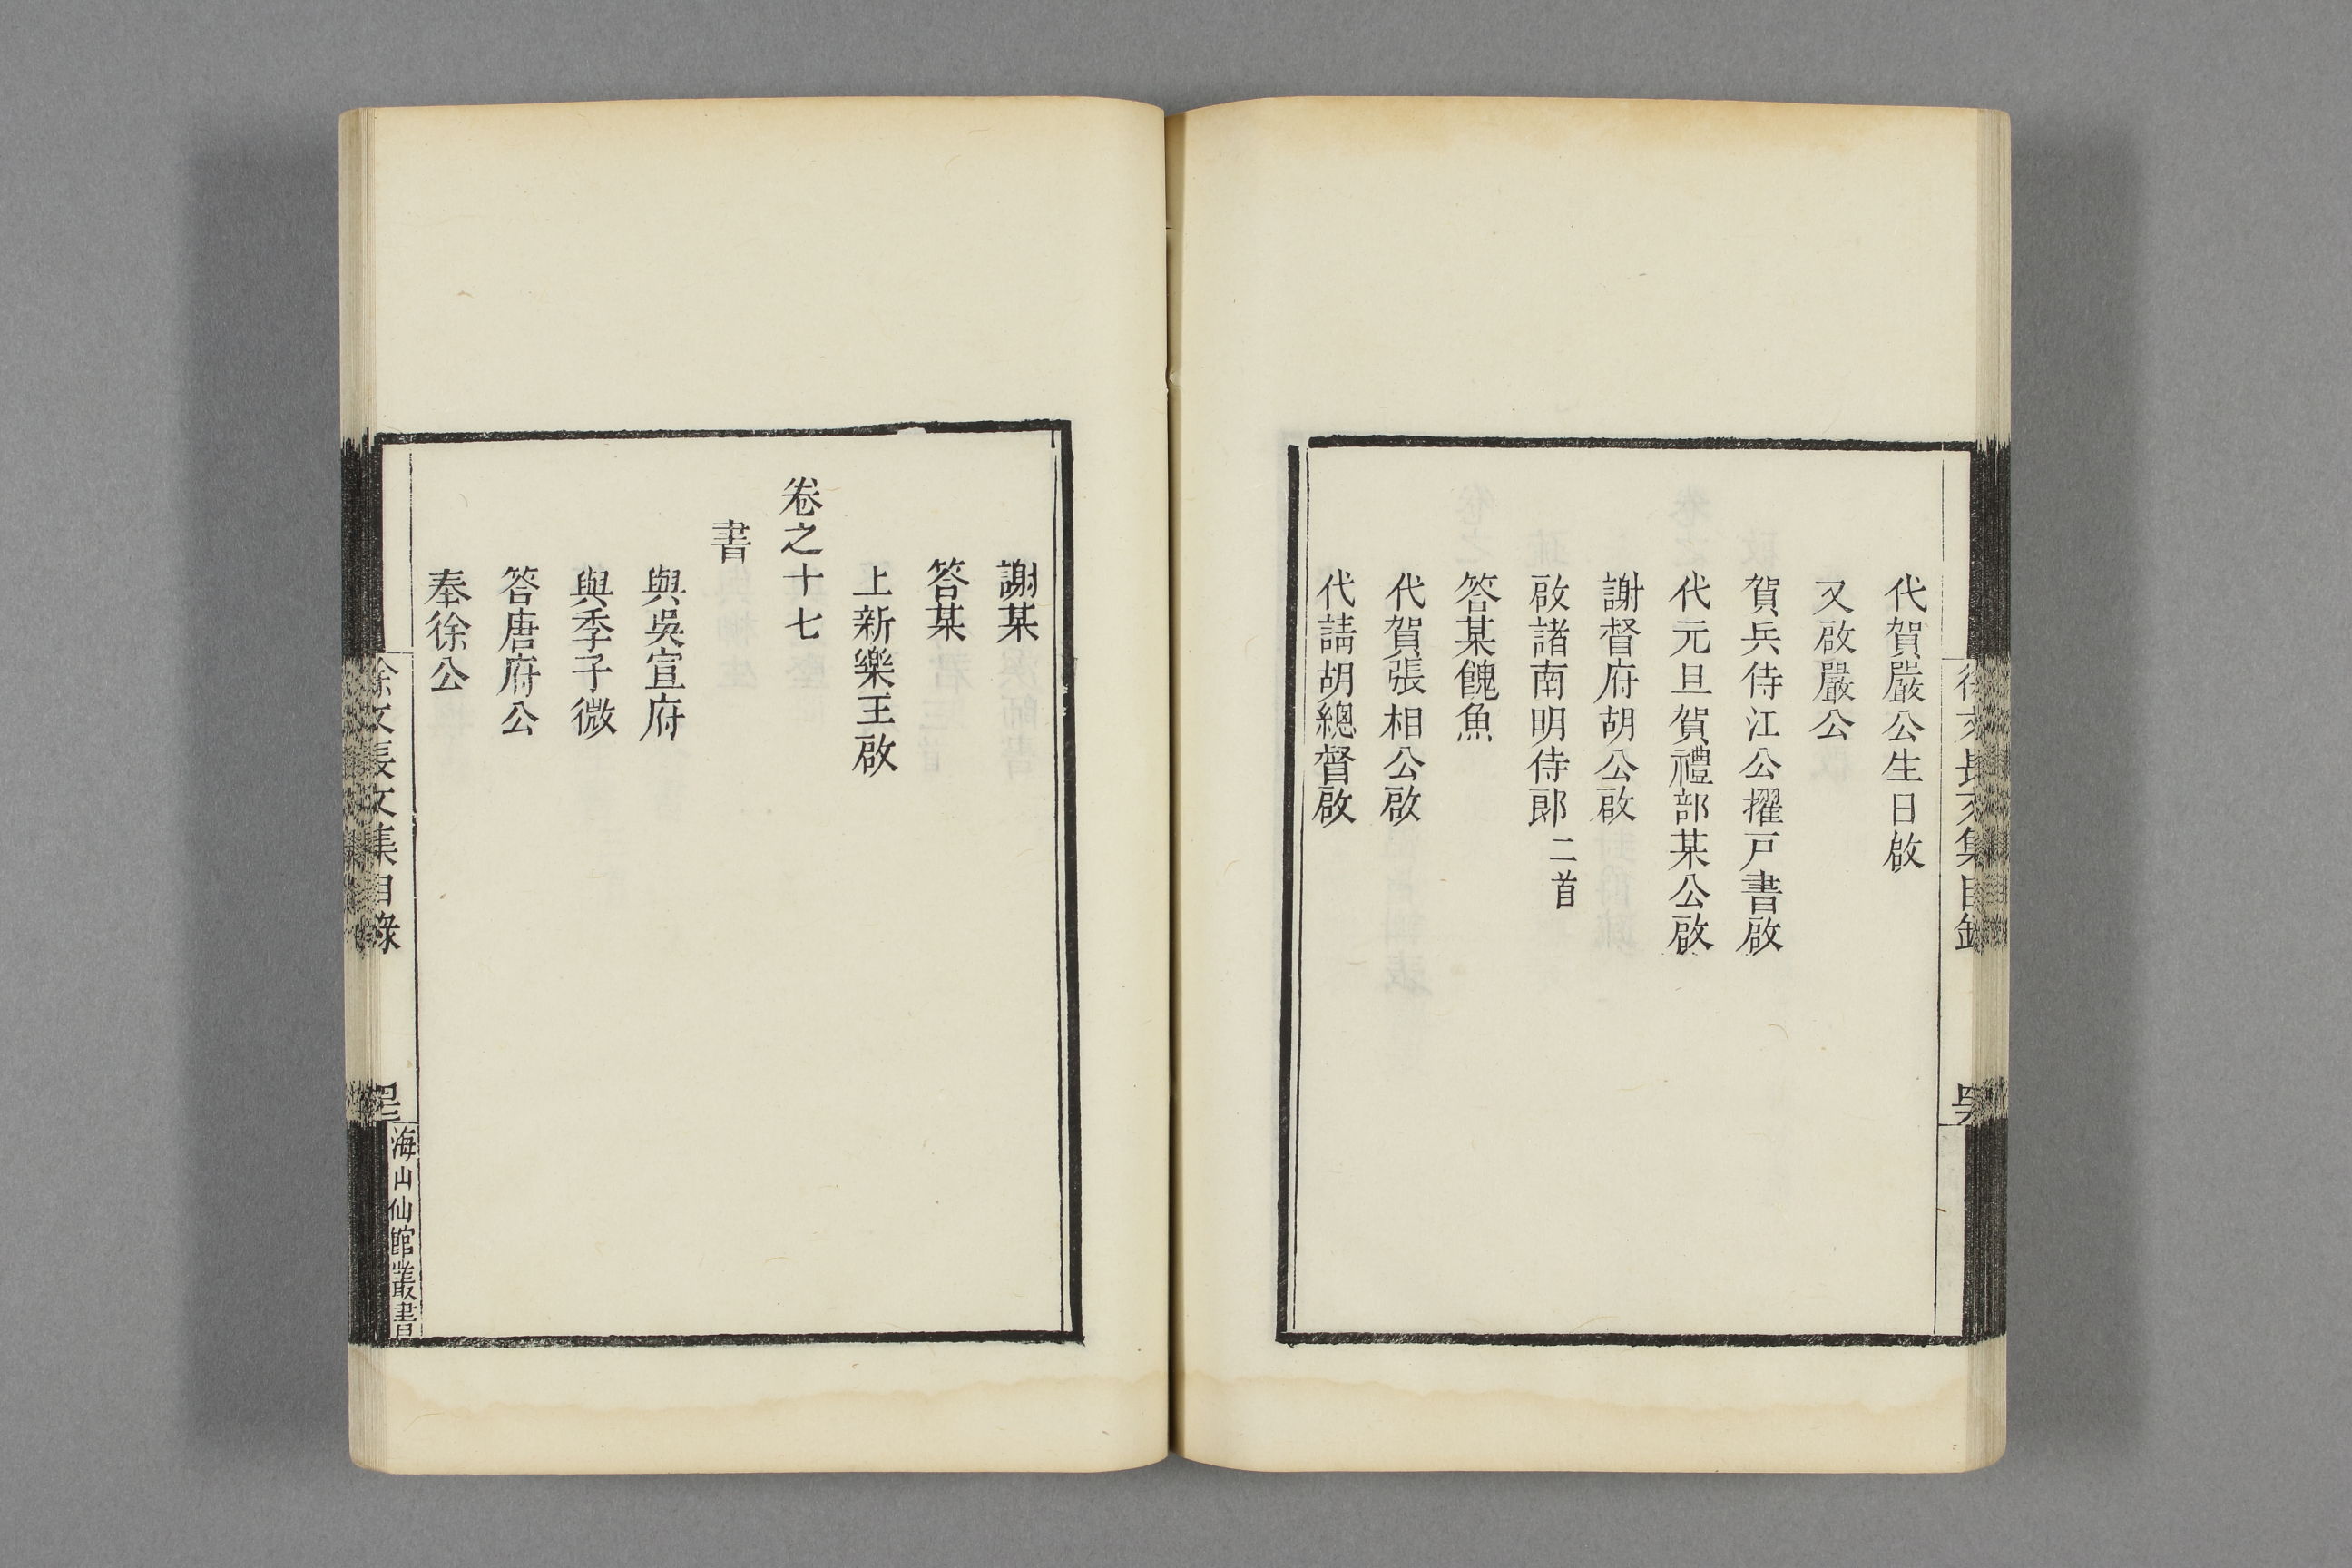 代賀嚴公生日啟
又啟嚴公
賀兵侍江公擢戸書啟
代元旦賀禮部某公啟
謝督府胡公啟
啟諸南明侍郎 二首
答某餽魚
代賀張相公啟
代請胡總督啟
謝某
答某
上新樂王啟
卷之十七
書
與吳宣府
與季子微
答唐府公
奉徐公
徐文長文集目錄
海山仙館叢書